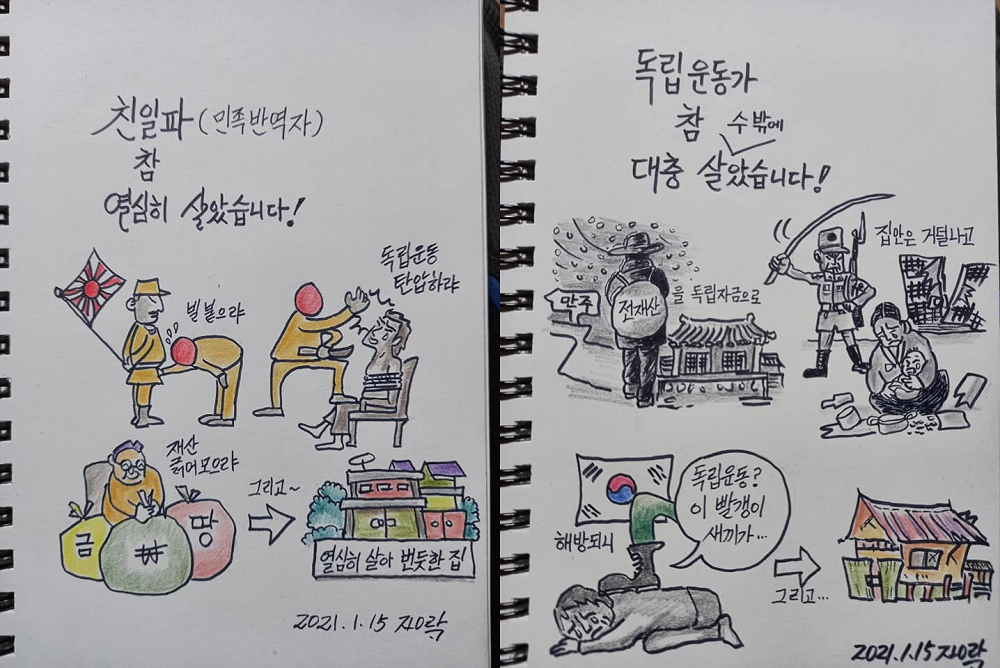 친일파 (민족반역자)
참
열심히 살았습니다!
빌붙으랴
독립운동
탄압하랴
재산
긁어모으랴
금
₩
땅
그리고~
열심히 살아 번듯한 집
2021.1.15 자락
독립운동가
참 수밖에
대충 살았습니다!
만주
전재산을 독립자금으로
집안은 거덜나고
해방되니
독립운동?
이 빨갱이
새끼가...
그리고...
2021.1.15 자락